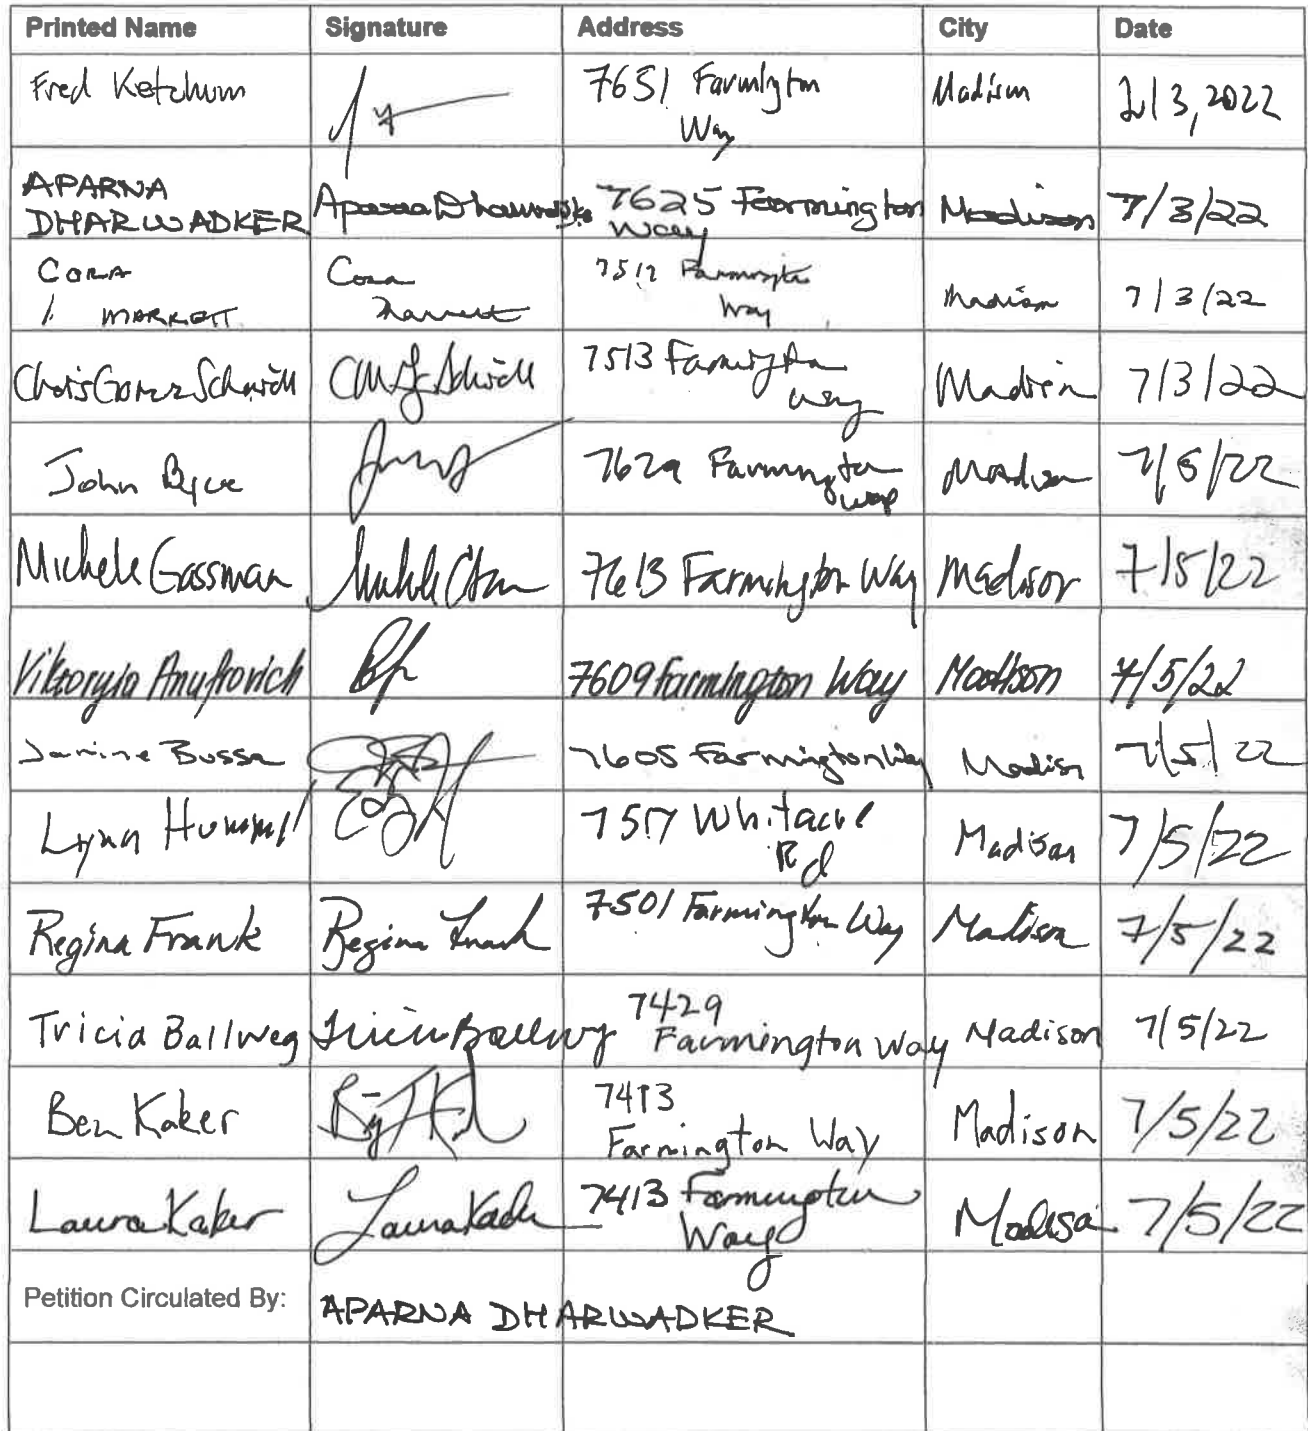 Printed Name Signature Address City Date
Fred Ketchum 7651 Farmington Madison 7/3, 2022
Way
APARNA
DHARWADKER Aparna Dharwadker 7625 Farmington Madison 7/3/22
Way
CORA Cora 7517 Farmington Madison 7/3/22
MARRETT Marrett Way
Chris Gomez Schmidt 7513 Farmington Madison 7/3/22
Way
John Byce 7629 Farmington Madison 7/5/22
Way
Michele Gassman 7613 Farmington Way Madison 7/5/22
Viktoryia Anufrovich 7609 Farmington Way Madison 7/5/22
Janine Bussa 7605 Farmington Way Madison 7/5/22
Lynn Hummel 7517 Whitacre Madison 7/5/22
Rd
Regina Frank Regina Frank 7501 Farmington Way Madison 7/5/22
7429
Tricia Ballweg Tricia Ballweg Farmington Way Madison 7/5/22
7413
Ben Kaker Farmington Way Madison 7/5/22
Laura Kaker Laura Kaker 7413 Farmington Madison 7/5/22
Way
Petition Circulated By: APARNA DHARWADKER